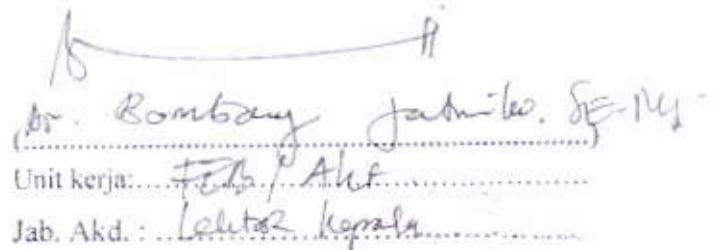 (Dr. Bambang Jatmiko, SE. MSi.)
Unit kerja: FEB / Akt
Jab. Akd. : Lektor Kepala